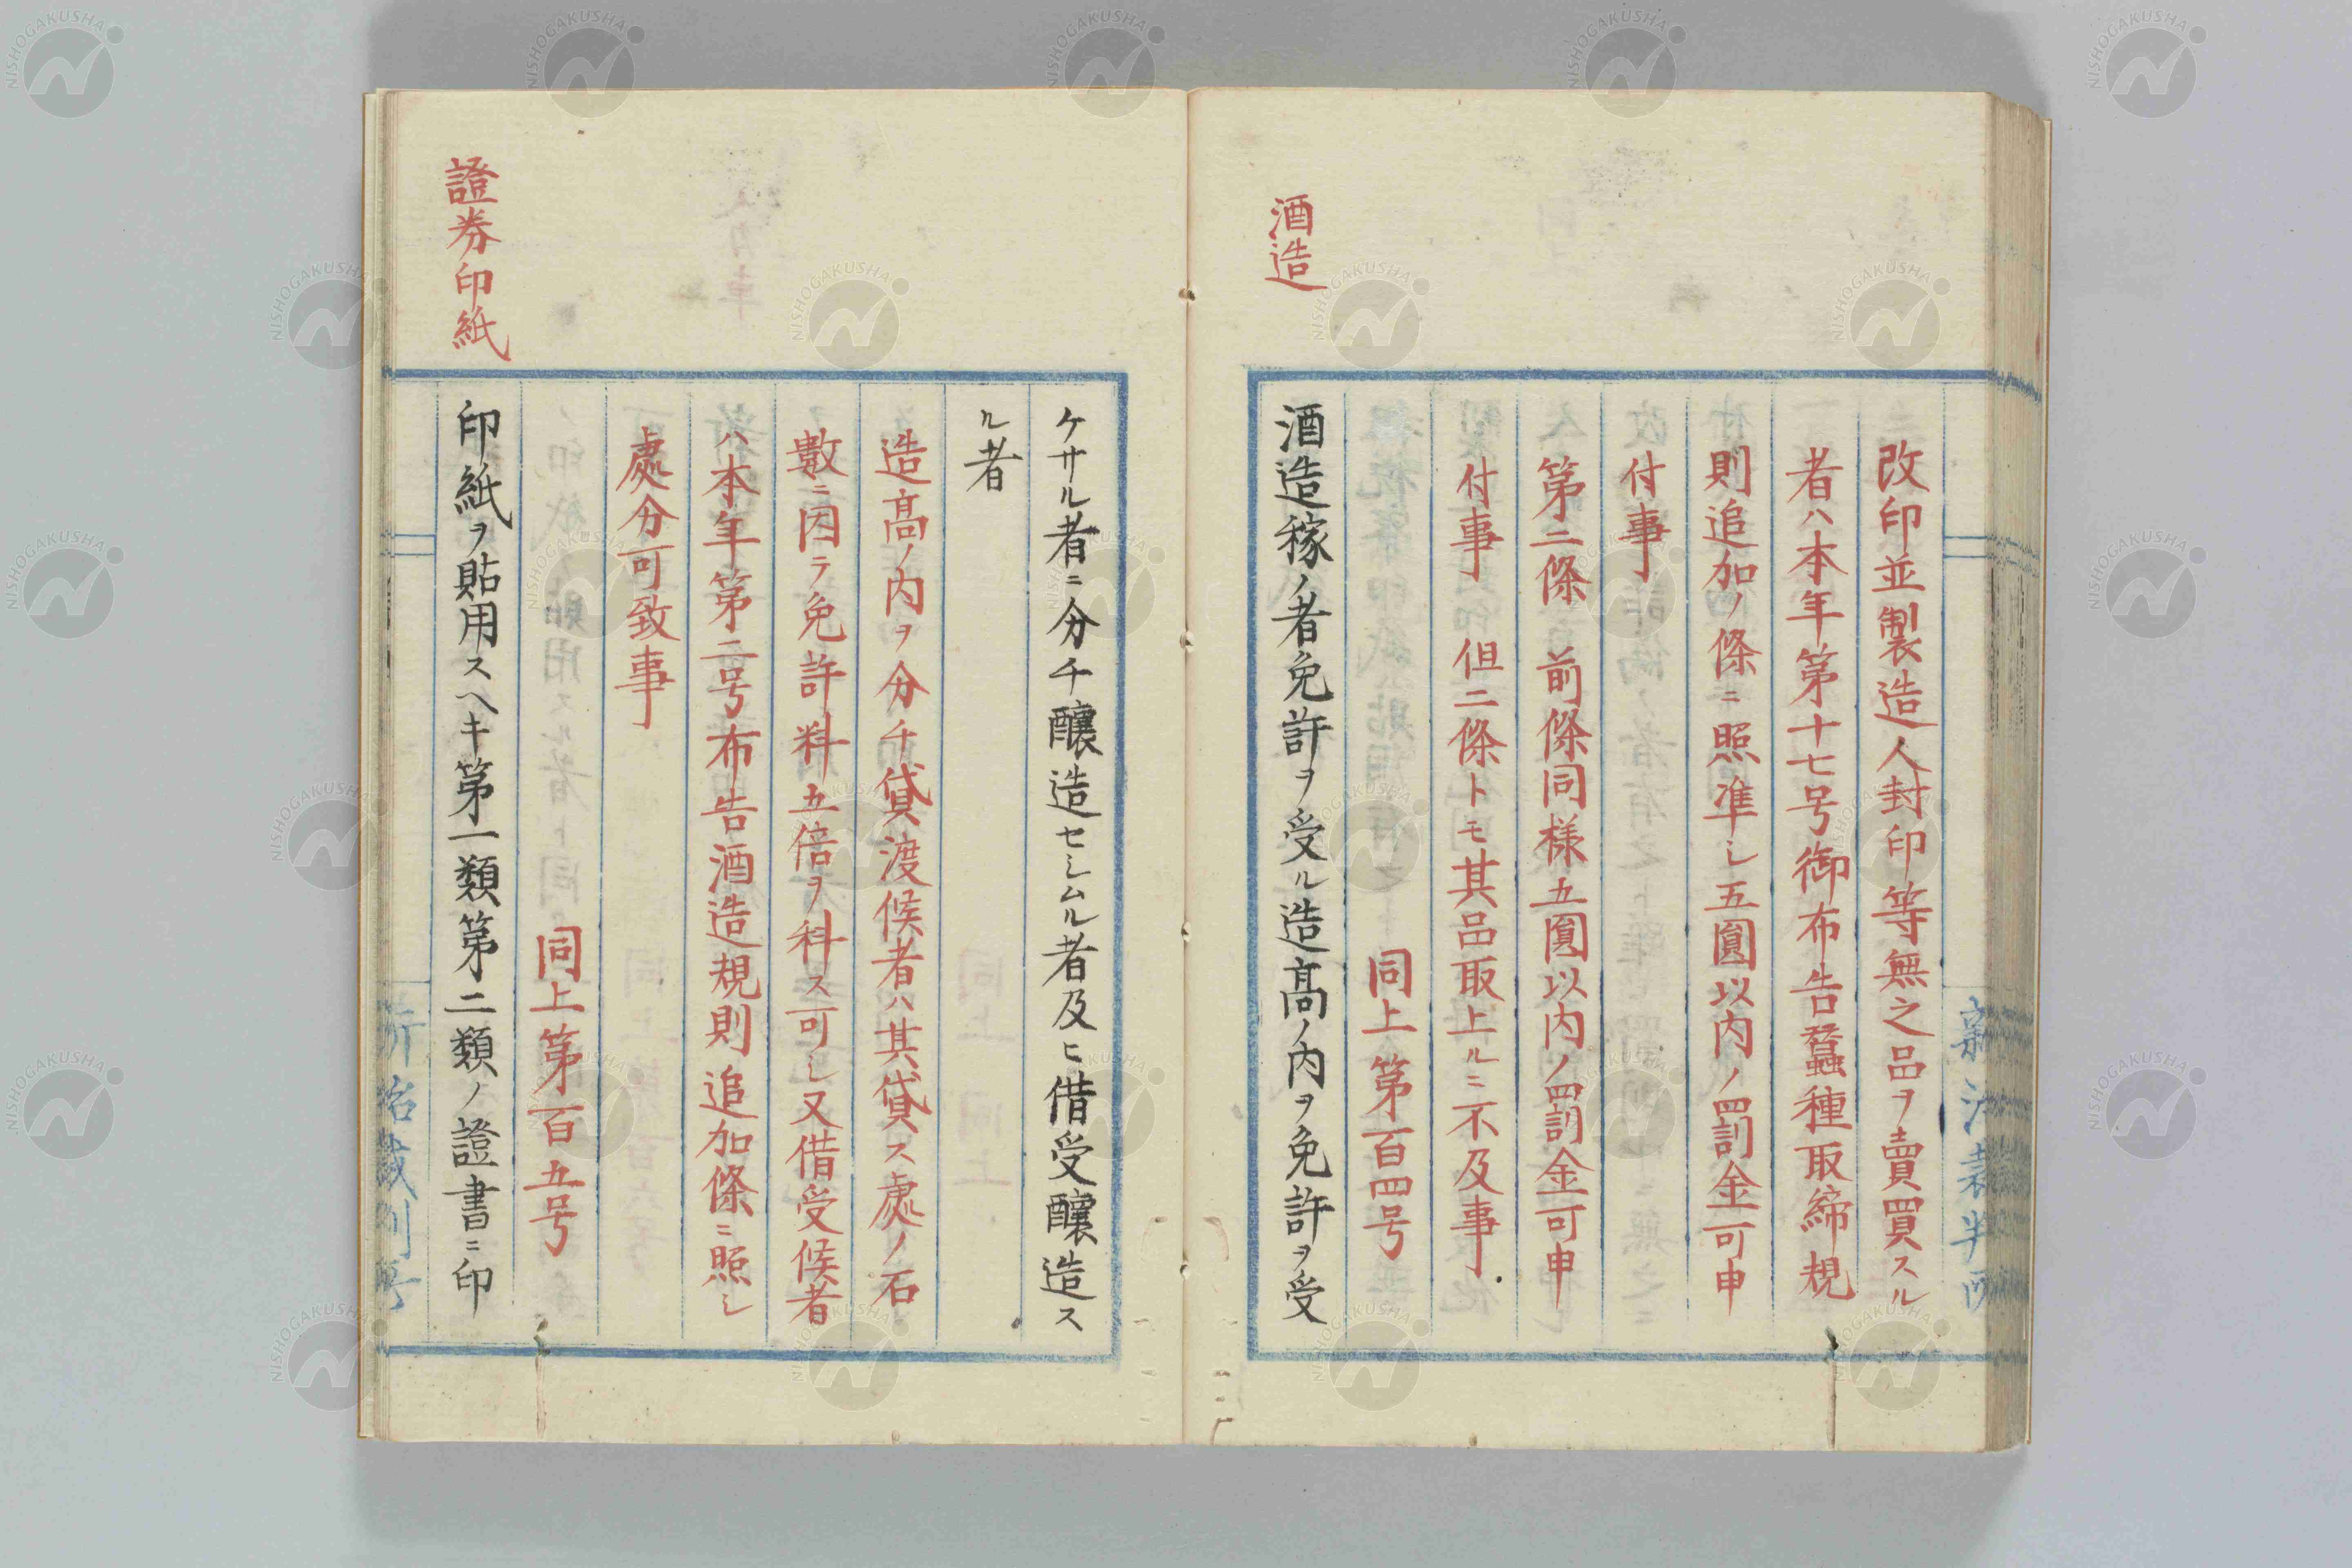 改印並製造人封印等無之品ヲ賣買スル
者ハ本年第十七号御布告蠶種取締規
則追加ノ條ニ照準シ五圓以内ノ罰金可申
付事
第二條 前條同様五圓以内ノ罰金可申
付事 但二條トモ其品取上ルニ不及事
同上第百四号
酒造
酒造稼ノ者免許ヲ受ル造高ノ内ヲ免許ヲ受
ケサル者ニ分チ釀造セシムル者及ヒ借受釀造ス
ル者
造高ノ内ヲ分チ貸渡候者ハ其貸ス處ノ石
數ニ因ラ免許料五倍ヲ科ス可シ又借受候者
ハ本年第二号布告酒造規則追加條ニ照シ
處分可致事
同上第百五号
證券印紙
印紙ヲ貼用スヘキ第一類第二類ノ證書ニ印
NISHOGAKUSHA